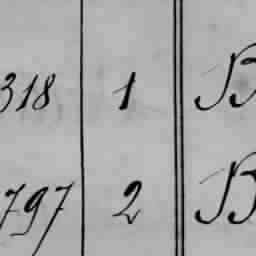 318 1 B
797 2 B